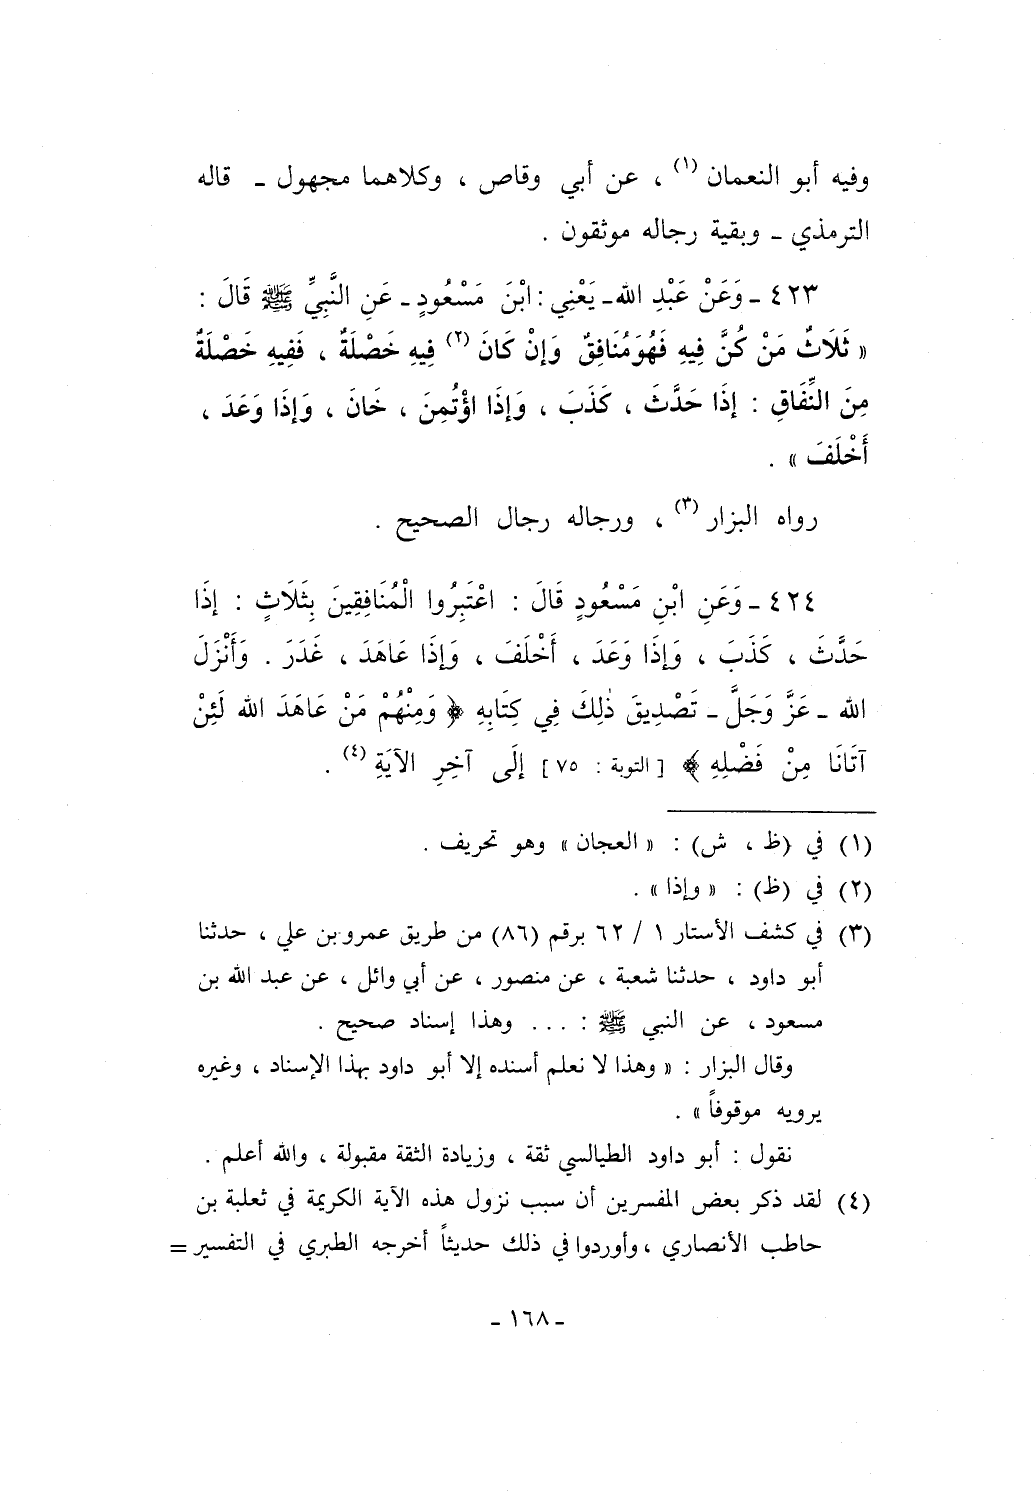 وفيه أبو النعمان (١) ، عن أبي وقاص ، وكلاهما مجهول ـ قاله
الترمذي ـ وبقية رجاله موثقون .
٤٢٣ ـ وَعَنْ عَبْدِ الله ـ يَعْنِي : ابْنَ مَسْعُودٍ ـ عَنِ النَّبِيِّ ﷺ قَالَ :
« ثَلَاثٌ مَنْ كُنَّ فِيهِ فَهُوَ مُنَافِقٌ وَإنْ كَانَ (٢) فِيهِ خَصْلَةٌ ، فَفِيهِ خَصْلَةٌ
مِنَ النِّفَاقِ : إذَا حَدَّثَ ، كَذَبَ ، وَإذَا اؤْتُمِنَ ، خَانَ ، وَإذَا وَعَدَ ،
أَخْلَفَ » .
رواه البزار (٣) ، ورجاله رجال الصحيح .
٤٢٤ ـ وَعَنِ ابْنِ مَسْعُودٍ قَالَ : اعْتَبِرُوا الْمُنَافِقِينَ بِثَلَاثٍ : إذَا
حَدَّثَ ، كَذَبَ ، وَإذَا وَعَدَ ، أَخْلَفَ ، وَإذَا عَاهَدَ ، غَدَرَ . وَأَنْزَلَ
الله ـ عَزَّ وَجَلَّ ـ تَصْدِيقَ ذٰلِكَ فِي كِتَابِهِ ﴿ وَمِنْهُمْ مَنْ عَاهَدَ الله لَئِنْ
آتَانَا مِنْ فَضْلِهِ ﴾ [ التوبة : ٧٥ ] إلَى آخِرِ الآيَةِ (٤) .
(١) في (ظ ، ش) : « العجان » وهو تحريف .
(٢) في (ظ) : « وإذا » .
(٣) في كشف الأستار ١ / ٦٢ برقم (٨٦) من طريق عمرو بن علي ، حدثنا
أبو داود ، حدثنا شعبة ، عن منصور ، عن أبي وائل ، عن عبد الله بن
مسعود ، عن النبي ﷺ : . . . وهذا إسناد صحيح .
وقال البزار : « وهذا لا نعلم أسنده إلا أبو داود بهذا الإسناد ، وغيره
يرويه موقوفاً » .
نقول : أبو داود الطيالسي ثقة ، وزيادة الثقة مقبولة ، والله أعلم .
(٤) لقد ذكر بعض المفسرين أن سبب نزول هذه الآية الكريمة في ثعلبة بن
حاطب الأنصاري ، وأوردوا في ذلك حديثاً أخرجه الطبري في التفسير =
ـ ١٦٨ ـ